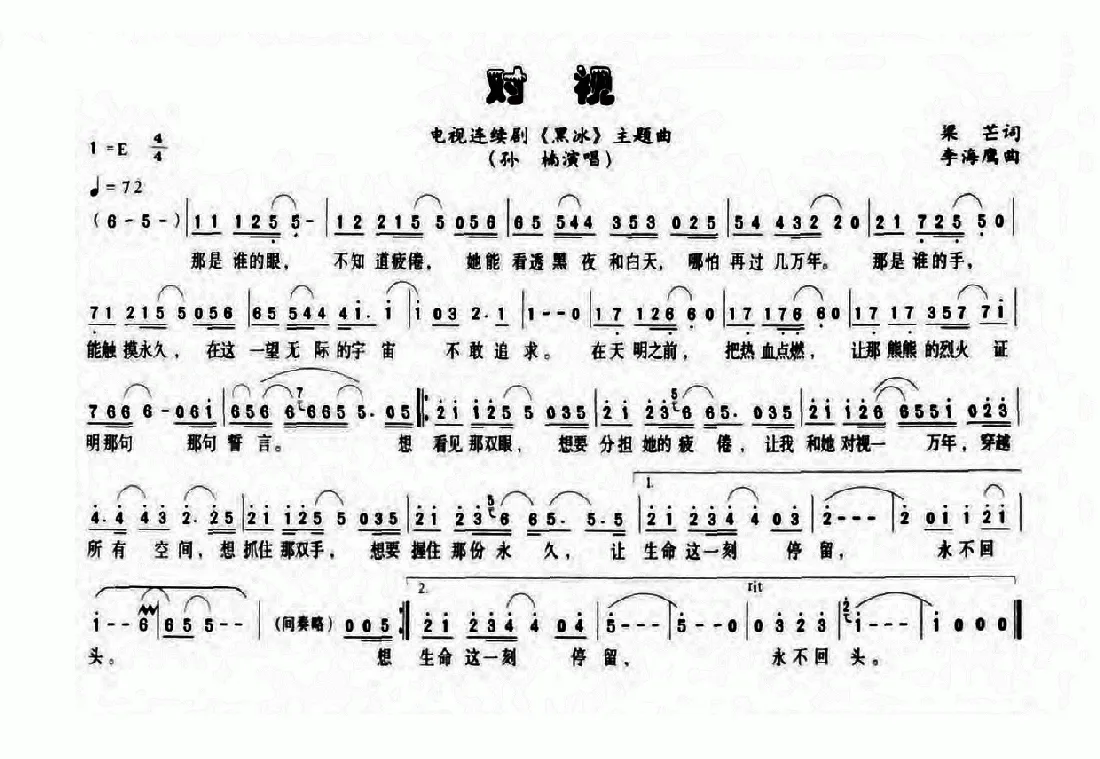 对 视
电视连续剧《黑冰》主题曲
(孙 楠演唱)
梁 芒词
李海鹰曲
1=E 4/4
♩=72
(6-5-) 11 125 5- 12 2155 056 65 544 353 025 54 432 20 21 725 50
那是谁的眼, 不知道疲倦, 她能看透黑夜和白天, 哪怕再过几万年。 那是谁的手,
71 2155 056 65 544 41·1 1 03 2·1 1--0 17 126 60 17 176 60 17 17 357 71
能触摸永久, 在这一望无际的宇宙 不敢追求。 在天明之前, 把热血点燃, 让那熊熊的烈火证
766 6-061 656 6 7 6655 5·05 21 125 5 035 21 23 5 6 65· 035 21 126 6551 023
明那句 那句誓言。 想 看见那双眼, 想要分担她的疲倦, 让我和她对视一 万年, 穿越
1.
4·4 43 2·25 21 125 5 035 21 23 5 6 65· 5·5 21 234 4 03 2--- 2 01 1 21
所有 空间, 想抓住那双手, 想要握住那份永久, 让 生命这一刻 停留, 永不回
2. rit
1--6 65 5-- (间奏略) 005 21 234 4 04 5--- 5--0 0323 2 1--- 1000
头。 想 生命这一刻 停留, 永不回头。